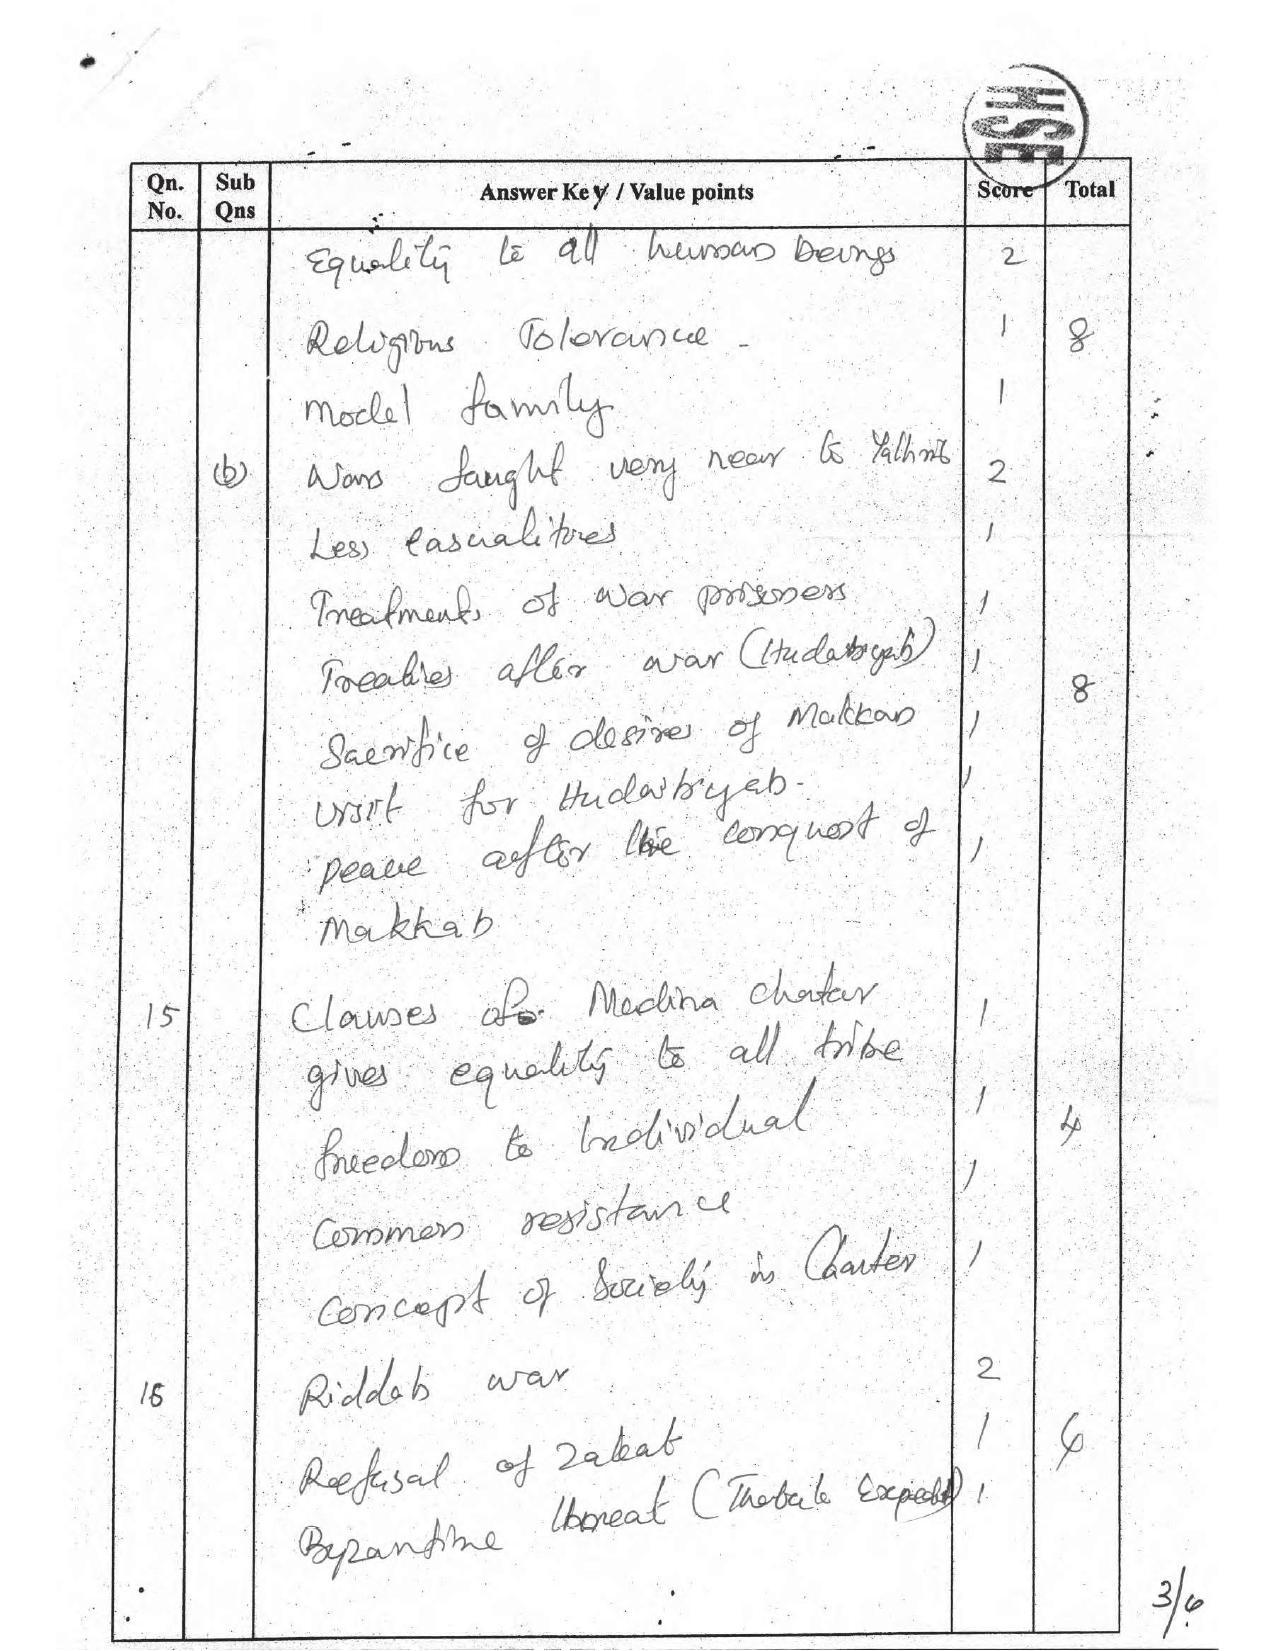 HSE
Qn. No. Sub Qns Answer Key / Value points Score Total
Equality to all human beings 2
Religious Tolerance - 1 8
Model family 1
(b) Wars faught very near to Yathrib 2
Less Casualitires 1
Treatments of war prisoners 1
Treaties after war (Hudaibiyah) 1
8
Sacrifice of desires of Makkan 1
visit for Hudaibiyah- 1
peace after the conquest of 1
Makkah
15 Clauses of Medina chatar 1
gives equality to all tribe
freedom to Individual 1 4
Common resistance 1
Concept of Society in Charter 1
16 Riddah war 2
Refusal of Zakat 1
Byzantine threat 1
3/6